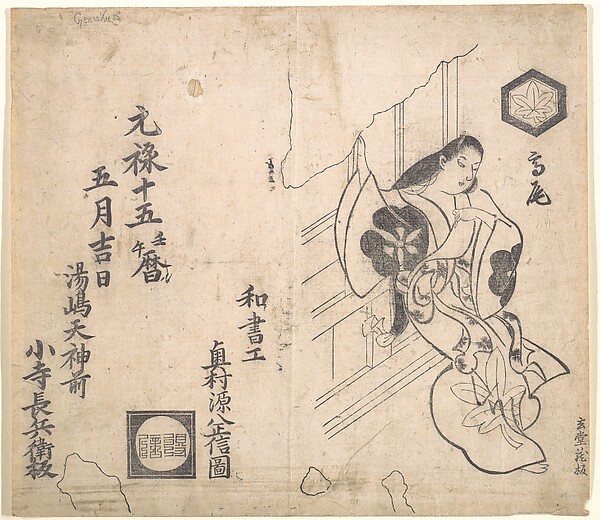 高尾
玄堂蔵板
和書工
奥村源八政信圖
元禄十五壬午暦
五月吉日
湯嶋天神前
小寺長兵衛板
Genroku 15